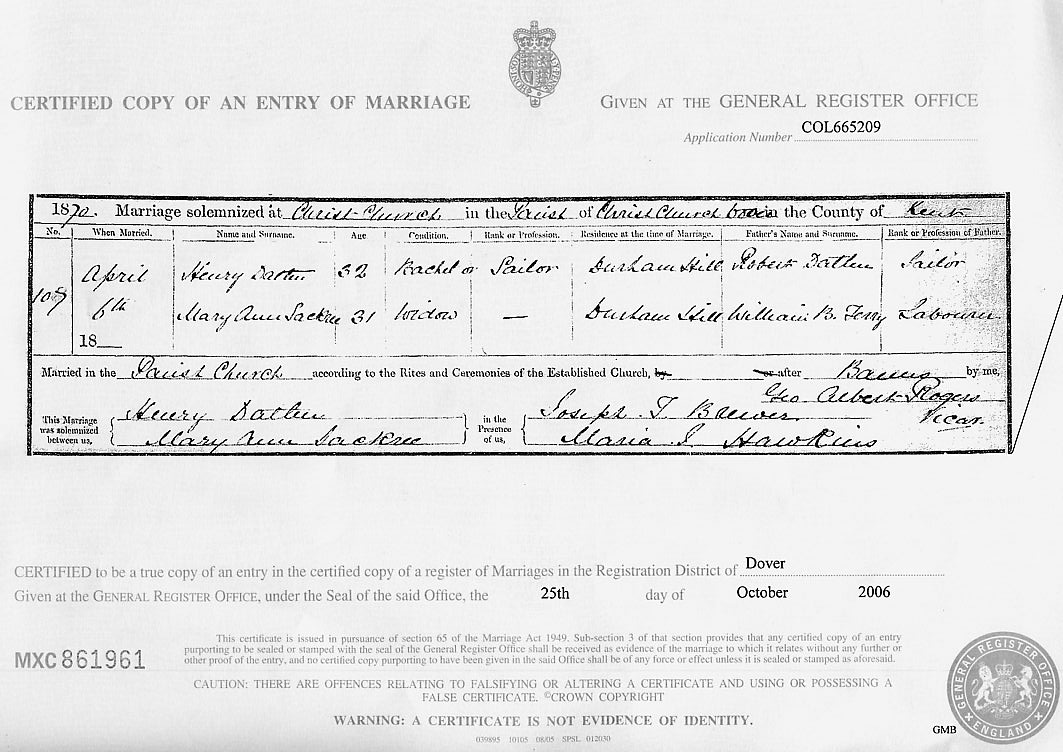 CERTIFIED COPY OF AN ENTRY OF MARRIAGE
GIVEN AT THE GENERAL REGISTER OFFICE
Application Number COL665209
1870. Marriage solemnized at Christ Church in the Parish of Christ Church Dover in the County of Kent
No. When Married. Name and Surname. Age Condition. Rank or Profession. Residence at the time of Marriage. Father's Name and Surname. Rank or Profession of Father.
April Henry Datlen 32 Bachelor Sailor Durham Hill Robert Datlen Sailor
109 6th Mary Ann Sackree 31 Widow — Durham Hill William B. Terry Labourer
18
Married in the Parish Church according to the Rites and Ceremonies of the Established Church, by or after Banns by me,
Geo. Albert Rogers
Vicar.
This Marriage was solemnized between us, Henry Datlen in the Presence of us, Joseph T. Brewer
Mary Ann Sackree Maria J. Hawkins
CERTIFIED to be a true copy of an entry in the certified copy of a register of Marriages in the Registration District of Dover
Given at the GENERAL REGISTER OFFICE, under the Seal of the said Office, the 25th day of October 2006
MXC 861961
This certificate is issued in pursuance of section 65 of the Marriage Act 1949. Sub-section 3 of that section provides that any certified copy of an entry
purporting to be sealed or stamped with the seal of the General Register Office shall be received as evidence of the marriage to which it relates without any further or
other proof of the entry, and no certified copy purporting to have been given in the said Office shall be of any force or effect unless it is sealed or stamped as aforesaid.
CAUTION: THERE ARE OFFENCES RELATING TO FALSIFYING OR ALTERING A CERTIFICATE AND USING OR POSSESSING A
FALSE CERTIFICATE. ©CROWN COPYRIGHT
WARNING: A CERTIFICATE IS NOT EVIDENCE OF IDENTITY.
039895 10105 08/05 SPSL 012030
GMB
GENERAL REGISTER OFFICE
ENGLAND